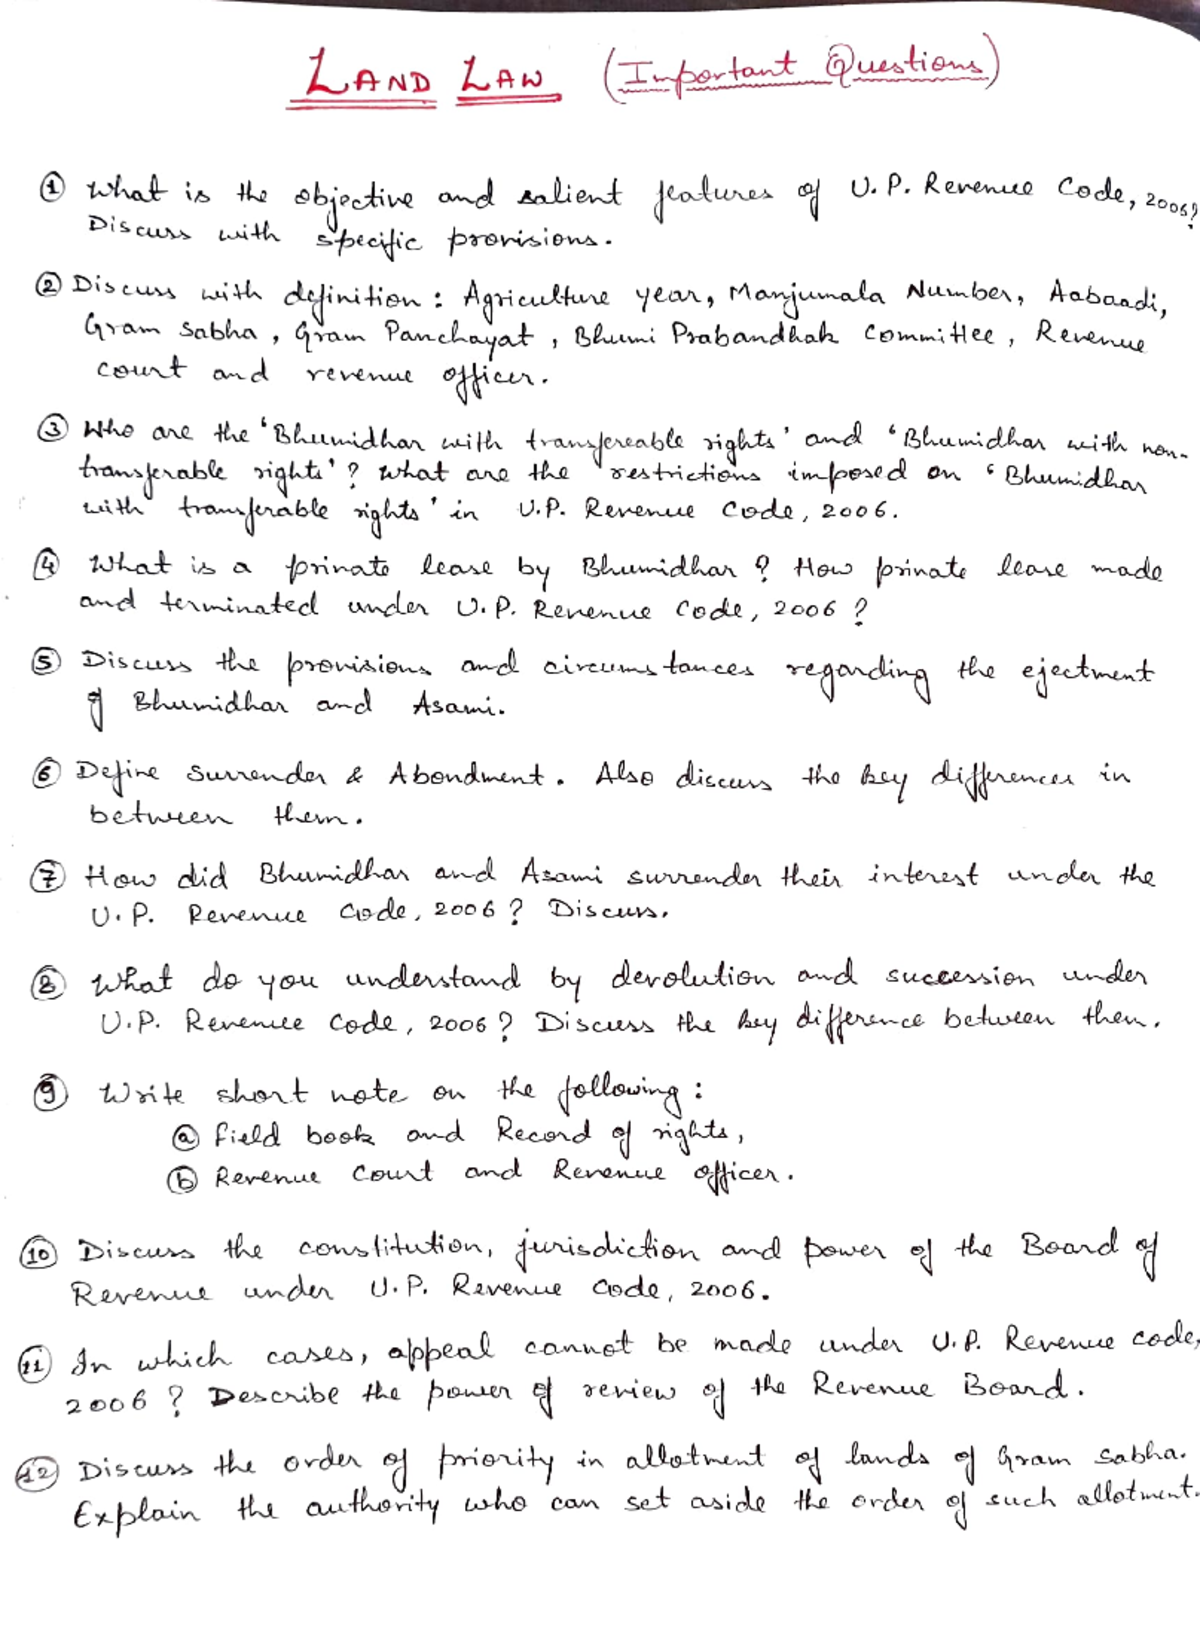 LAND LAW (Important Questions)
① What is the objective and salient features of U.P. Revenue Code, 2006?
Discuss with specific provisions.
② Discuss with definition : Agriculture year, Manjumala Number, Aabaadi,
Gram Sabha, Gram Panchayat, Bhumi Prabandhak Committee, Revenue
court and revenue officer.
③ Who are the 'Bhumidhar with transfereable rights' and 'Bhumidhar with non-
transferable rights'? What are the restrictions imposed on 'Bhumidhar
with transferable rights' in U.P. Revenue Code, 2006.
④ What is a private lease by Bhumidhar? How private lease made
and terminated under U.P. Revenue Code, 2006?
⑤ Discuss the provisions and circumstances regarding the ejectment
of Bhumidhar and Asami.
⑥ Define Surrender & Abondment. Also discuss the key differences in
between them.
⑦ How did Bhumidhar and Asami surrender their interest under the
U.P. Revenue Code, 2006? Discuss.
⑧ What do you understand by devolution and succession under
U.P. Revenue Code, 2006? Discuss the key difference between them.
⑨ Write short note on the following :
ⓐ Field book and Record of rights,
ⓑ Revenue Court and Revenue officer.
⑩ Discuss the constitution, jurisdiction and power of the Board of
Revenue under U.P. Revenue Code, 2006.
⑪ In which cases, appeal cannot be made under U.P. Revenue code,
2006? Describe the power of review of the Revenue Board.
⑫ Discuss the order of priority in allotment of lands of Gram Sabha.
Explain the authority who can set aside the order of such allotment.